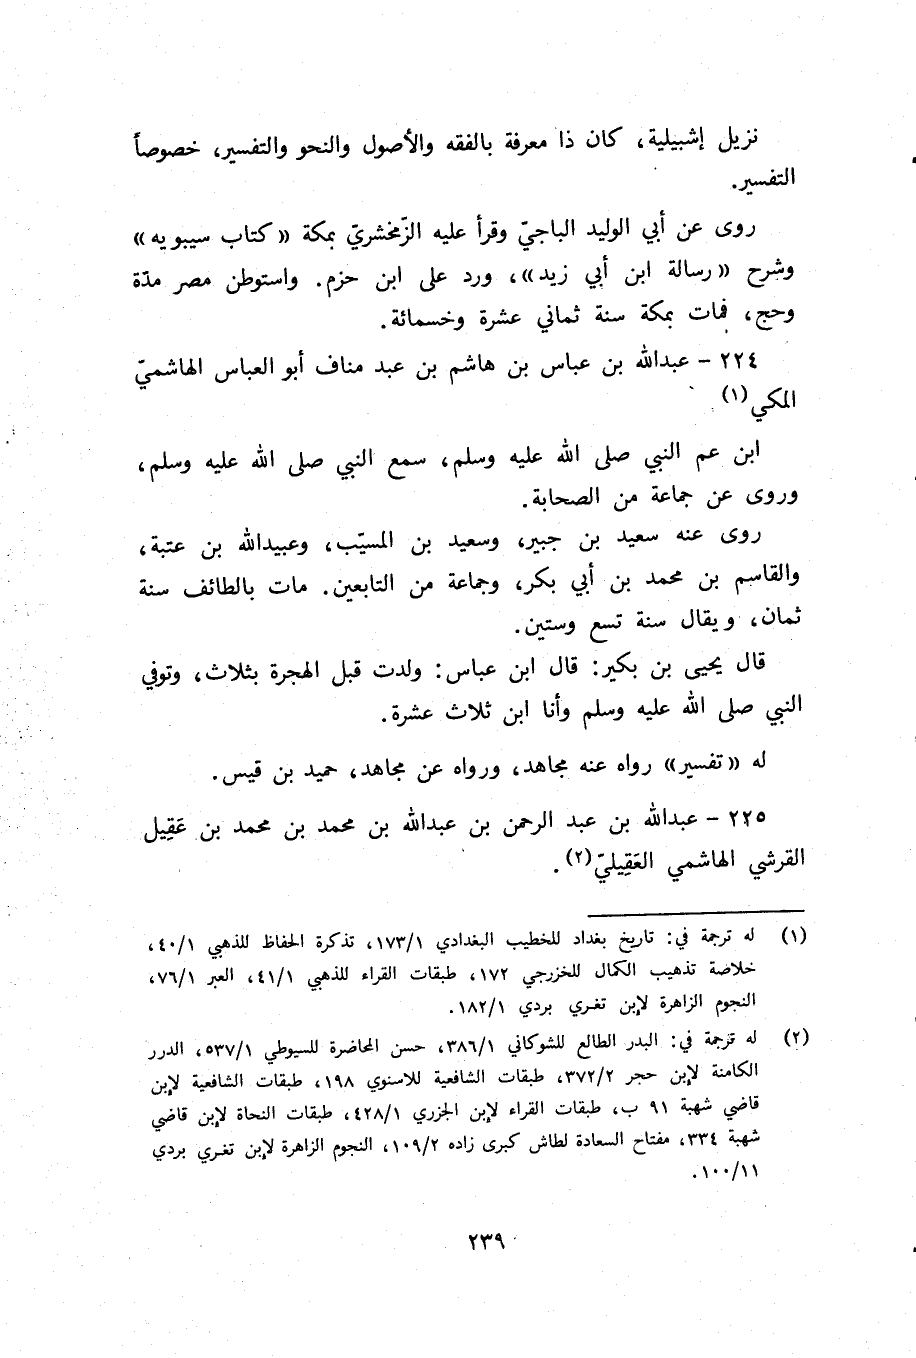 نزيل إشبيلية، كان ذا معرفة بالفقه والأصول والنحو والتفسير، خصوصاً
التفسير.
روى عن أبي الوليد الباجيّ وقرأ عليه الزّمخشريّ بمكة «كتاب سيبويه»
وشرح «رسالة ابن أبي زيد»، ورد على ابن حزم. واستوطن مصر مدّة
وحج، فمات بمكة سنة ثماني عشرة وخمسمائة.
٢٢٤ - عبدالله بن عباس بن هاشم بن عبد مناف أبو العباس الهاشميّ
المكي(١)
ابن عم النبي صلى الله عليه وسلم، سمع النبي صلى الله عليه وسلم،
وروى عن جماعة من الصحابة.
روى عنه سعيد بن جبير، وسعيد بن المسيّب، وعبيدالله بن عتبة،
والقاسم بن محمد بن أبي بكر، وجماعة من التابعين. مات بالطائف سنة
ثمان، ويقال سنة تسع وستين.
قال يحيى بن بكير: قال ابن عباس: ولدت قبل الهجرة بثلاث، وتوفي
النبي صلى الله عليه وسلم وأنا ابن ثلاث عشرة.
له «تفسير» رواه عنه مجاهد، ورواه عن مجاهد، حميد بن قيس.
٢٢٥ - عبدالله بن عبد الرحمن بن عبدالله بن محمد بن محمد بن عَقِيل
القرشي الهاشمي العَقِيليّ(٢).
(١) له ترجمة في: تاريخ بغداد للخطيب البغدادي ١٧٣/١، تذكرة الحفاظ للذهبي ٤٠/١،
خلاصة تذهيب الكمال للخزرجي ١٧٢، طبقات القراء للذهبي ٤١/١، العبر ٧٦/١،
النجوم الزاهرة لإبن تغري بردي ١٨٢/١.
(٢) له ترجمة في: البدر الطالع للشوكاني ٣٨٦/١، حسن المحاضرة للسيوطي ٥٣٧/١، الدرر
الكامنة لإبن حجر ٣٧٢/٢، طبقات الشافعية للاسنوي ١٩٨، طبقات الشافعية لإبن
قاضي شهبة ٩١ ب، طبقات القراء لإبن الجزري ٤٢٨/١، طبقات النحاة لإبن قاضي
شهبة ٣٣٤، مفتاح السعادة لطاش كبرى زاده ١٠٩/٢، النجوم الزاهرة لإبن تغري بردي
١٠٠/١١.
٢٣٩